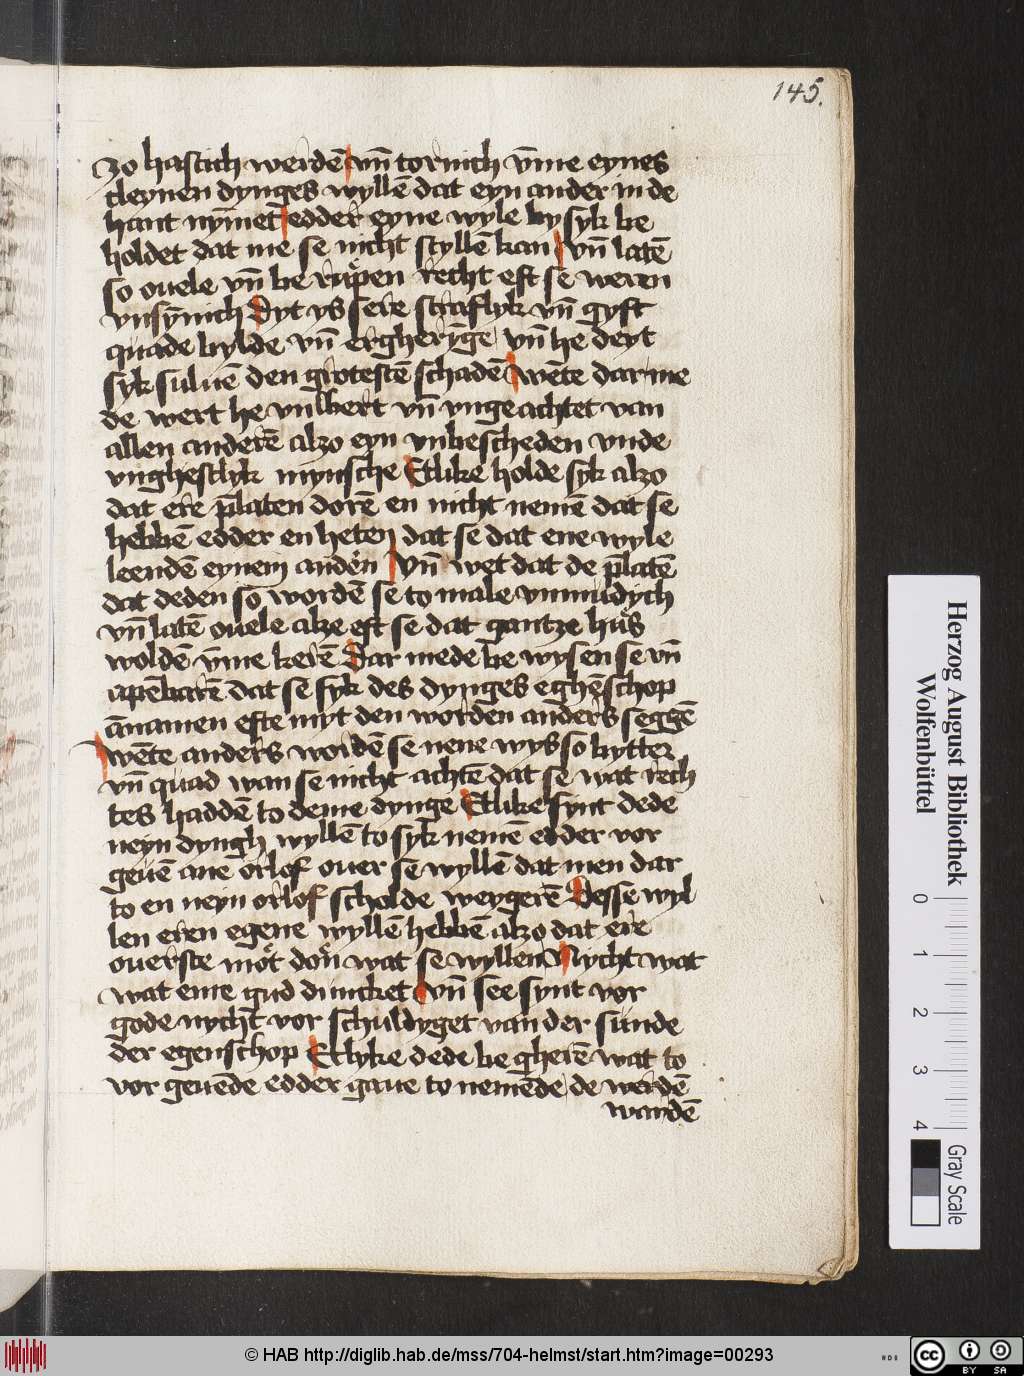 145.
zo hastich werdē vn̄ tornich vm̄e eynes
cleynen dynges wyllē dat eyn ander in de
hant nym̄et edder eyne wyle by syk be
holdet dat me se nicht styllē kan vn̄ latē
so ouele vn̄ be ruͦpen recht eft se weren
vnsȳnich Dyt ys sere straflyk vn̄ gyft
quade bylde vn̄ ergherȳge vn̄ he deyt
syk suluē den grotestē schadē wēte dar me
de wert he vnwert vn̄ vngeachtet van
allen anderē alzo eyn vnbescheden vnde
vnghestlyk mynsche Etlike holdē syk alzo
dat ere p̄laten dorē en nicht nemē dat se
hebbē edder en heten dat se dat ene wyle
leendē eynem andern Vn̄ wet dat de p̄latē
dat deden so wordē se to male vnmudych
vn̄ latē ouele alze eft se dat gantze huͦs
woldē vm̄e kerē Dar mede be wysen se vn̄
apēbarē dat se syk des dynges eghēschop
ānamen efte myt den worden anders seggē
wēte anders wordē se nene wys so bytter
vn̄ quad wan se nicht achtē dat se wat rech
tes haddē to deme dynge Etlike synt dede
neyn dyngh wyllē to syk nemē edder vor
geuē ane orlof ouer se wyllē dat men dar
to en neyn orlof scholde weygerē Desse wyl
len eren egene wyllē hebbē alzo dat ere
ouerste moͤt don wat se wyllen Nycht wat
wat eme gud duncket vn̄ see synt vor
gode nycht vor schuldyget van der sunde
der egenschop Etlyke dede be gherē wat to
vor geuēde edder gaue to nemēde de werdē
wandē
Herzog August Bibliothek
Wolfenbüttel
0 1 2 3 4
Gray Scale
© HAB http://diglib.hab.de/mss/704-helmst/start.htm?image=00293
cc BY SA